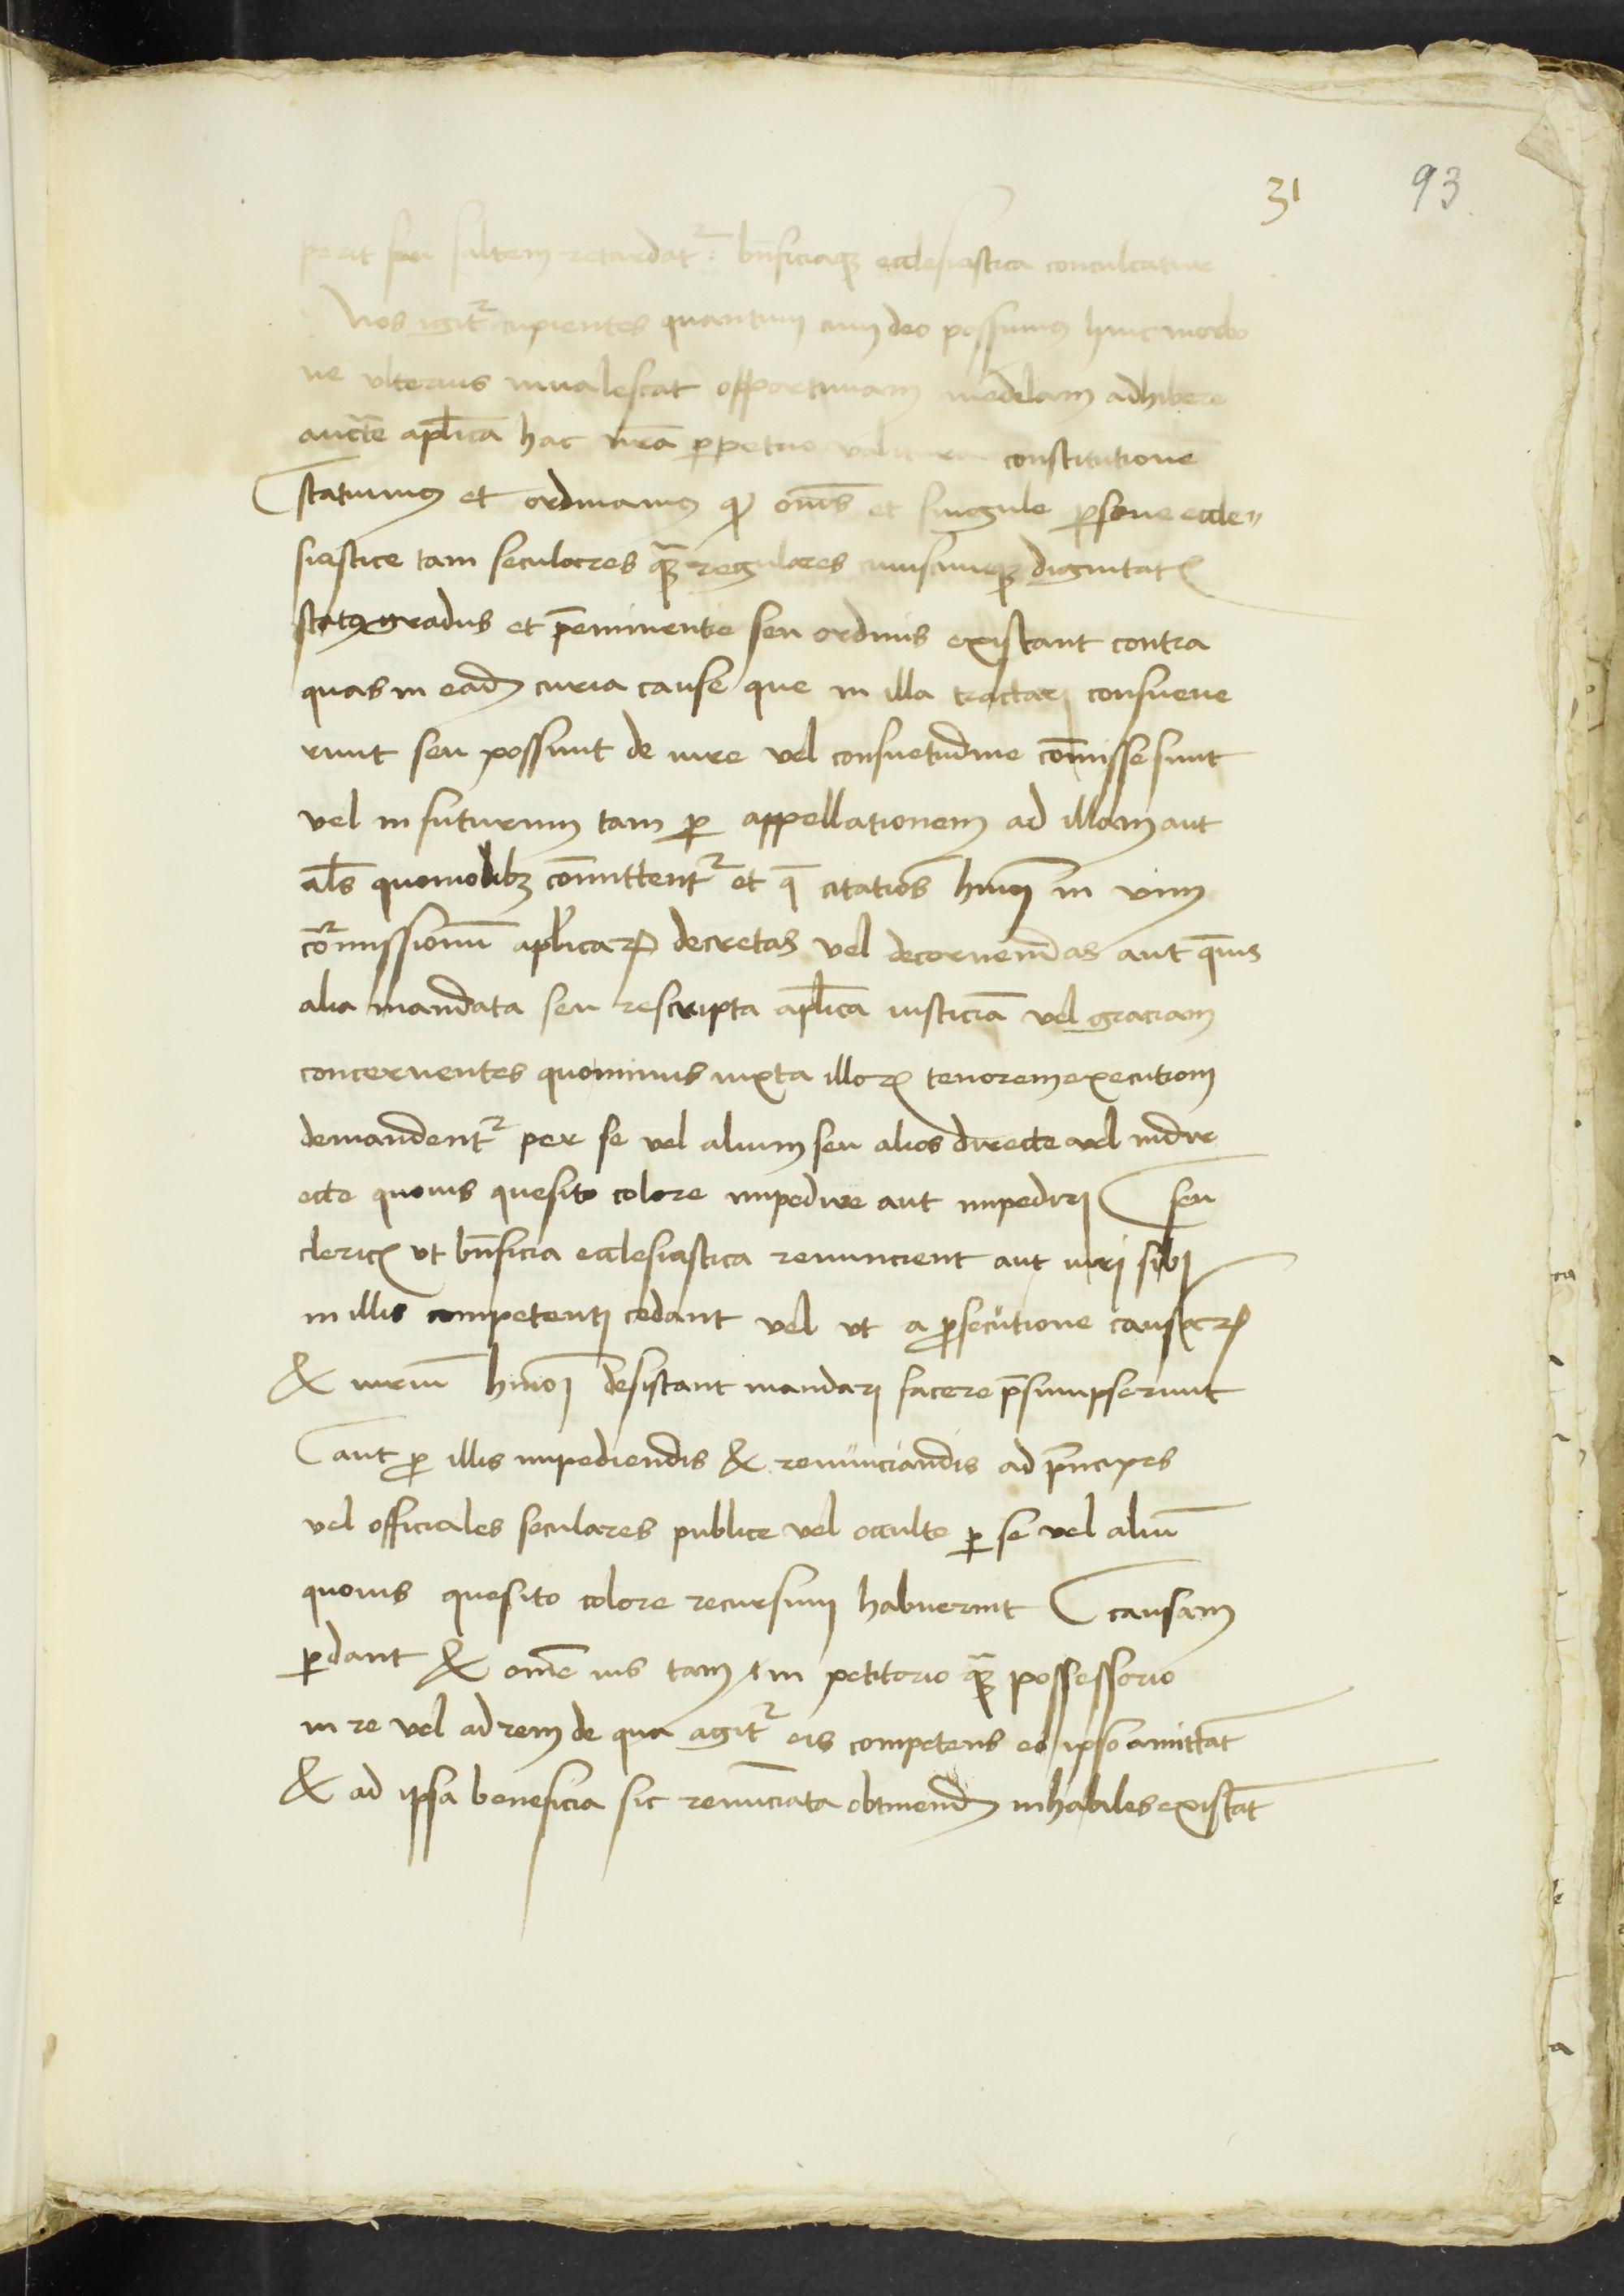 31 93
perit seu saltem retardat᷑: bn̄ficiaqꝫ ecclesiastica conculcatur
Nos igit᷑ cupientes quantum cum deo possumꝰ huic morbo
ne vlterius inualescat opportunam medelam adhibere
auct̄e ap̄lica hac nr̄a ꝑpetuo valitura constitutione
Statuimꝰ et ordinamꝰ ꝙ om̄s et singule ꝑsone eccle〃
siastice tam seculares qꝫ̄ regulares cuiuscunqꝫ dignitatꝭ
statꝰ gradus et p̄eminentie seu ordinis existant contra
quas in eadꝫ curia cause que in illa tractari consueue
runt seu possunt de iure vel consuetudine com̄isse sunt
vel in futurum tam ꝑ appellationem ad illam aut
al̄s quomodolibꝫ com̄ittent᷑ et q̄ citatiōs hm̄oi in vim
com̄issionū ap̄licaꝝ decretas vel decernendas aut q̄uis
alia mandata seu rescripta ap̄lica iusticiā vel graciam
concernentes quominus iuxta illoꝝ tenorem executiom
demandent᷑ per se vel alium seu alios directe vel indir
ecte quouis quesito colore impedire aut impediri seu
clericꝭ vt bn̄ficia ecclesiastica renuncient aut iuri sibi
in illis competenti cedant vel vt a ꝓsecutione causaꝝ
& iuriū hm̄oi desistant mandari facere p̄sumpserunt
aut ꝓ illis impediendis & renunciandis ad p̄ncipes
vel officiales seculares publice vel occulte ꝑ se vel aliū
quouis quesito colore recursum habuerint causam
ꝑdant & om̄e ius tam in petitorio qꝫ̄ possessorio
in re vel ad rem de qua agit᷑ eis competens eo ipso amittāt
& ad ipsa beneficia sic renūciata obtinendꝫ inhabiles existāt